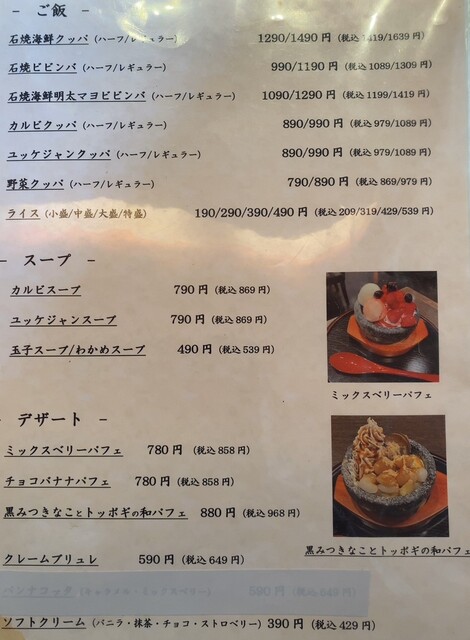 － ご飯 －
石焼海鮮クッパ（ハーフ/レギュラー） 1290/1490 円（税込 1419/1639 円）
石焼ビビンバ（ハーフ/レギュラー） 990/1190 円（税込 1089/1309 円）
石焼海鮮明太マヨビビンバ（ハーフ/レギュラー） 1090/1290 円（税込 1199/1419 円）
カルビクッパ（ハーフ/レギュラー） 890/990 円（税込 979/1089 円）
ユッケジャンクッパ（ハーフ/レギュラー） 890/990 円（税込 979/1089 円）
野菜クッパ（ハーフ/レギュラー） 790/890 円（税込 869/979 円）
ライス（小盛/中盛/大盛/特盛） 190/290/390/490 円（税込 209/319/429/539 円）
－ スープ －
カルビスープ 790 円（税込 869 円）
ユッケジャンスープ 790 円（税込 869 円）
玉子スープ/わかめスープ 490 円（税込 539 円）
ミックスベリーパフェ
－ デザート －
ミックスベリーパフェ 780 円（税込 858 円）
チョコバナナパフェ 780 円（税込 858 円）
黒みつきなことトッポギの和パフェ 880 円（税込 968 円）
黒みつきなことトッポギの和パフェ
クレームブリュレ 590 円（税込 649 円）
パンナコッタ（キャラメル・ミックスベリー） 590 円（税込 649 円）
ソフトクリーム（バニラ・抹茶・チョコ・ストロベリー）390 円（税込 429 円）